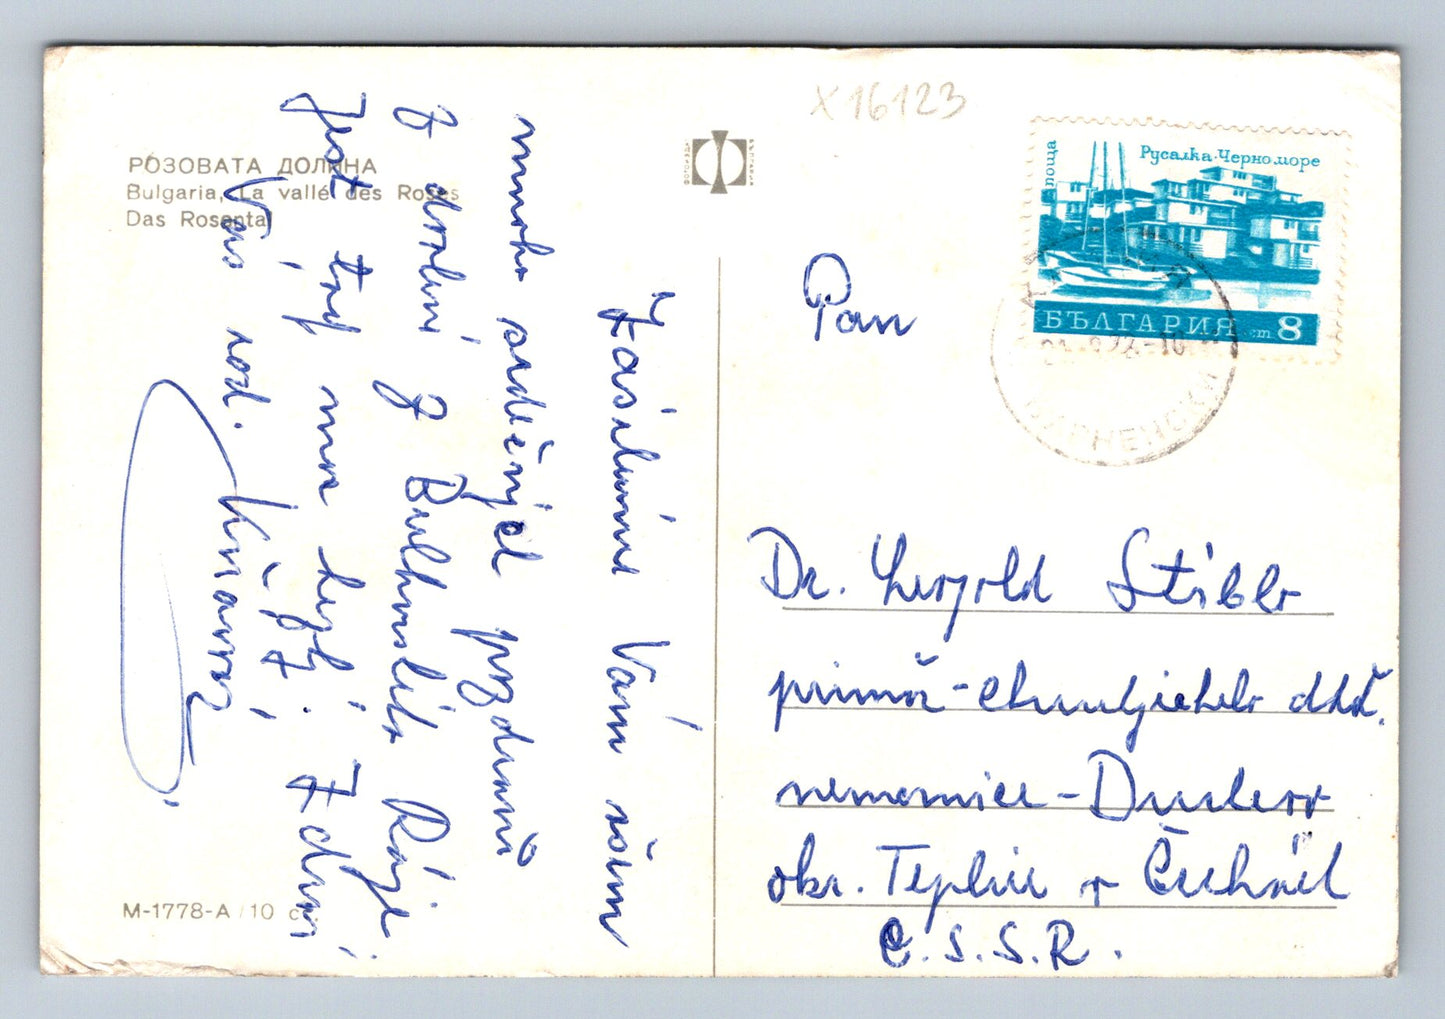 X16123
РОЗОВАТА ДОЛИНА
Bulgaria, La vallé des Roses
Das Rosental
Zasíláme Vám všem
mnoho srdečných pozdravů
z dovolené z Bulharska. Ráje
Jest tady moc teplo. Zdraví
Vás rod.
M-1778-A/10
поща
Русалка·Черно море
БЪЛГАРИЯ ст 8
ВАРНЕНСКИ
Pan
Dr. Leopold Stibbr
primář-chirurgického odd.
nemocnice-Duchcov
okr. Teplice v Čechách
Č.S.S.R.